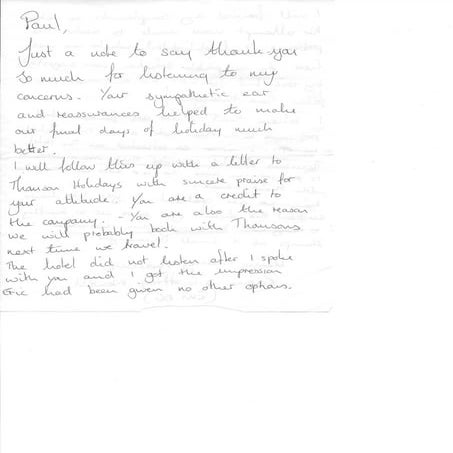 Paul,
Just a note to say thank you
so much for listening to my
concerns. Your sympathetic ear
and reassurances helped to make
our final days of holiday much
better.
I will follow this up with a letter to
Thomson Holidays with sincere praise for
your attitude. You are a credit to
the company. - You are also the reason
we will probably book with Thomsons
next time we travel.
The hotel did not listen after I spoke
with you and I got the impression
had been given no other options.